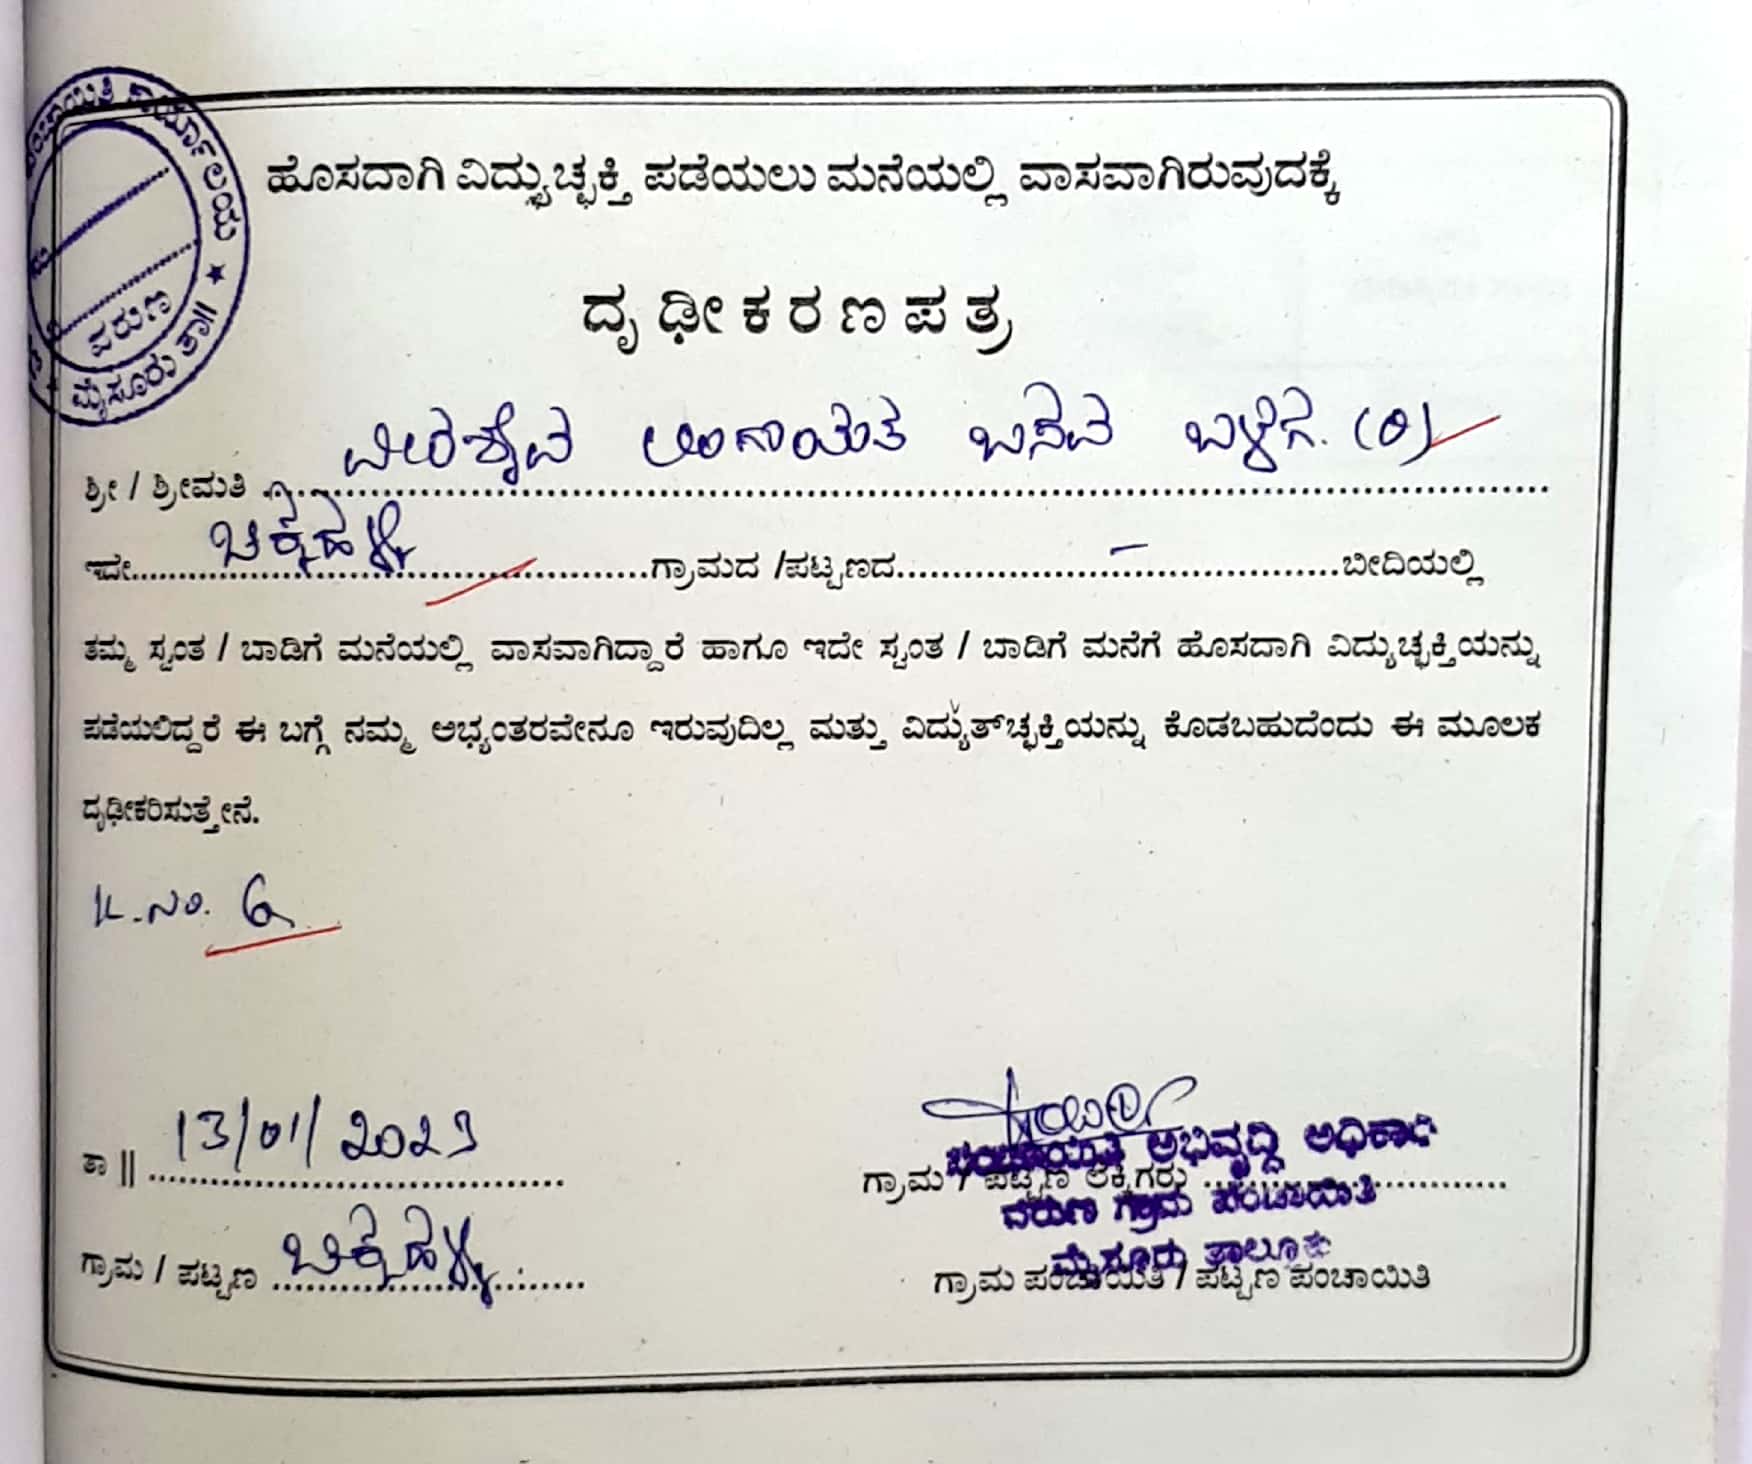 ಪಂಚಾಯಿತಿ ಕಾರ್ಯಾಲಯ
ವರುಣ
ಮೈಸೂರು ತಾ||
ಹೊಸದಾಗಿ ವಿದ್ಯುಚ್ಛಕ್ತಿ ಪಡೆಯಲು ಮನೆಯಲ್ಲಿ ವಾಸವಾಗಿರುವುದಕ್ಕೆ
ದೃಢೀಕರಣಪತ್ರ
ವೀರಶೈವ ಲಿಂಗಾಯಿತ ಬಸವ ಬಳಗ. (ರಿ)
ಶ್ರೀ / ಶ್ರೀಮತಿ ........................
ಇದೇ....ಚಿಕ್ಕಹಳ್ಳಿ....ಗ್ರಾಮದ /ಪಟ್ಟಣದ....–....ಬೀದಿಯಲ್ಲಿ
ತಮ್ಮ ಸ್ವಂತ / ಬಾಡಿಗೆ ಮನೆಯಲ್ಲಿ ವಾಸವಾಗಿದ್ದಾರೆ ಹಾಗೂ ಇದೇ ಸ್ವಂತ / ಬಾಡಿಗೆ ಮನೆಗೆ ಹೊಸದಾಗಿ ವಿದ್ಯುಚ್ಛಕ್ತಿಯನ್ನು
ಪಡೆಯಲಿದ್ದರೆ ಈ ಬಗ್ಗೆ ನಮ್ಮ ಅಭ್ಯಂತರವೇನೂ ಇರುವುದಿಲ್ಲ ಮತ್ತು ವಿದ್ಯುತ್‌ಚ್ಛಕ್ತಿಯನ್ನು ಕೊಡಬಹುದೆಂದು ಈ ಮೂಲಕ
ದೃಢೀಕರಿಸುತ್ತೇನೆ.
ನಂ. 6
ತಾ || 13/01/2023
ಗ್ರಾಮ / ಪಟ್ಟಣ ಚಿಕ್ಕಹಳ್ಳಿ
ಪಂಚಾಯಿತಿ ಅಭಿವೃದ್ಧಿ ಅಧಿಕಾರಿ
ಗ್ರಾಮ / ಪಟ್ಟಣ ಲೆಕ್ಕಿಗರು ..............
ವರುಣ ಗ್ರಾಮ ಪಂಚಾಯಿತಿ
ಮೈಸೂರು ತಾಲೂಕು
ಗ್ರಾಮ ಪಂಚಾಯಿತಿ / ಪಟ್ಟಣ ಪಂಚಾಯಿತಿ